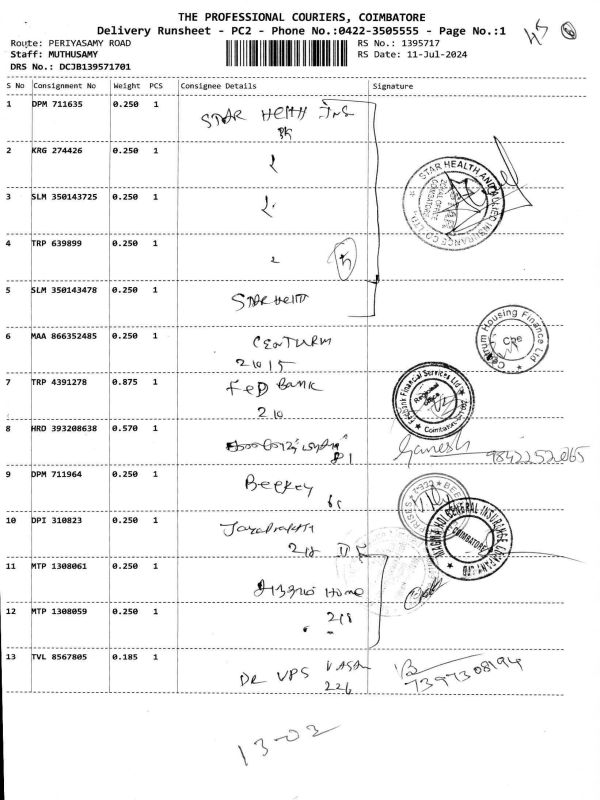 THE PROFESSIONAL COURIERS, COIMBATORE
Delivery Runsheet - PC2 - Phone No.:0422-3505555 - Page No.:1
Route: PERIYASAMY ROAD
RS No.: 1395717
Staff: MUTHUSAMY
RS Date: 11-Jul-2024
DRS No.: DCJB139571701
S No Consignment No Weight PCS Consignee Details Signature
1 DPM 711635 0.250 1 STAR Helth Ins
2 KRG 274426 0.250 1
3 SLM 350143725 0.250 1
4 TRP 639899 0.250 1 5
STAR HEALTH AND ALLIED INSURANCE CO LTD.
ZONAL OFFICE
COIMBATORE
5 SLM 350143478 0.250 1 STAR Helth
6 MAA 866352485 0.250 1 CENTURM
21015
Centrum Housing Finance Ltd
CRe
7 TRP 4391278 0.875 1 FeD Bank
210
Fedbank Financial Services Ltd
Regional Office
Coimbatore
8 HRD 393208638 0.570 1
81
Ganesh 9842252065
9 DPM 711964 0.250 1
10 DPI 310823 0.250 1
218
MAGMA HDI GENERAL INSURANCE COMPANY LTD
COIMBATORE
11 MTP 1308061 0.250 1 Home
12 MTP 1308059 0.250 1 218
13 TVL 8567805 0.185 1 DR VPS VASAN
226
7397308194
13-02